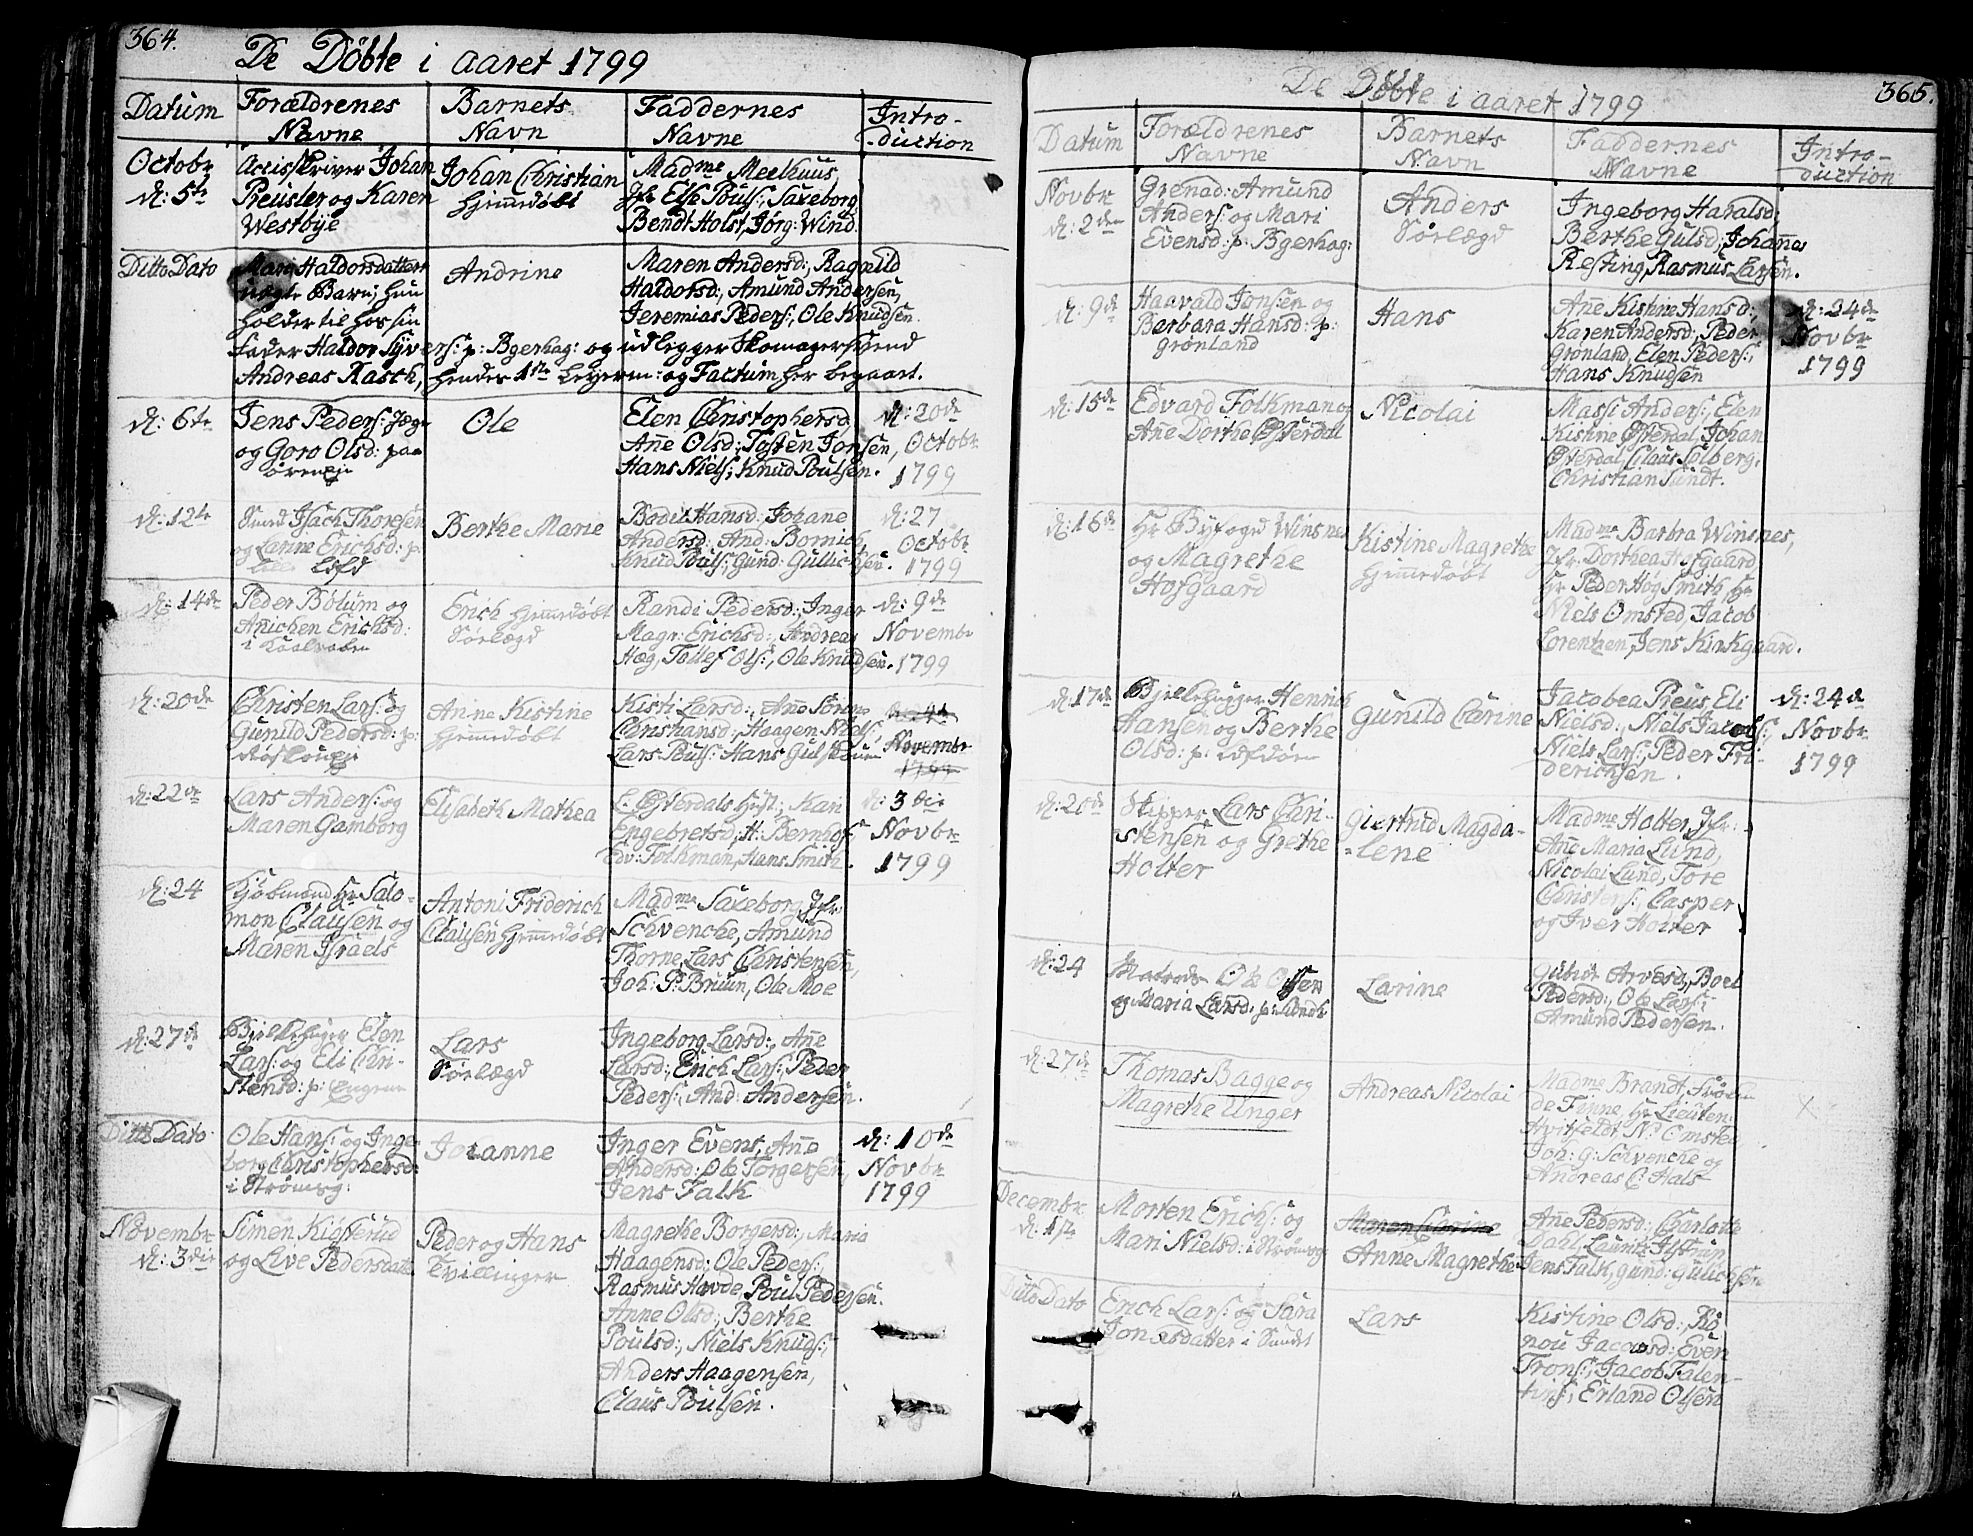 364.
De Döbte i aaret 1799
Datum
Forældrenes Navne
Barnets Navn
Faddernes Navne
Intro-
duction
Octobr
d: 5te
Accisskriver Johan
Preusler og Karen
Westbye
Johan Christian
Hjemmedöbt
Madme Meekuus,
Jfr Else Pouls:, Saxeborg,
Bendt Holst, Jörg: Wind.
Ditto Dato
Haldorsdatters
uægte Barn; hun
holder til hos sin
Fader Haldor Syvers: p: Bgerhag: og udlegger Skomagersvend
Andreas Rasch, hendes 1ste Leyerm: og Factum her begaaet.
Andrine
Maren Andersd:, Ragnild
Haldorsd:, Amund Andersen,
Jeremias Peders:, Ole Knudsen.
d: 6te
Jens Peders:
og Goro Olsd: paa
Ole
Elen Christophersd
Añe Olsd:, Tosten Jonsen,
Hans Niels:, Knud Poulsen.
d: 20de
Octobr
1799
d: 12te
Isach Thoresen
og Larine Erichsd: p:
Berthe Marie
Bodil Hansd: Johane
Andersd: And: Bornich,
Knud Pouls:, Gund: Gullichsen.
d: 27
Octobr
1799
d: 14de
Peder Bölum og
Añichen Erichsd:
Erich Hjemmedöbt
Sørlægd
Randi Pedersd:, Inger
Magr: Erichsd:, Andreas
Hæg, Tollef Ols:, Ole Knudsen.
d: 9de
Novembr
1799
d: 20de
Christen Lars: og
Gunild Pedersd: p:
Anne Kistine
Hjemmedöbt
Kisti Larsd:, Añe Sören
Christiansd:, Haagen Niels:,
Lars Pouls: Hans Gulskoven
Novembr
1799
d: 22de
Lars Anders: og
Maren Gamborg
Elisabeth Mathea
L. Österdals Hust:, Kari
Engebretsd:, H: Bernhoft
Edv: Folkman, Hans Smith.
d: 3die
Novbr
1799
d: 24
Kjöbmand Hr Salo-
mon Clausen og
Maren Israels
Antoni Friderich
Clausen Hjemmedöbt
Madme Saxeborg, Jfr
Schvencke, Amund
Thorne, Lars Christensen,
Joh: P: Bruun, Ole Moe
d: 27de
Elen
Lars: og Eli Chri-
stensd: p:
Lars
Sørlægd
Ingeborg Larsd:, Añe
Larsd:, Erich Lars:, Peder
Peders:, And: Andersen.
Ditto Dato
Ole Hans: og Inge-
borg Christophersd:
i Strömsg:
Johanne
Inger Evens, Añe
Andersd: Ole Torgersen,
Jens Falk
d: 10de
Novbr
1799
Novembr
d: 3die
Simen Kiösterud
og Live Pedersdatter
Peder og Hans
Tvillinger
Magrethe Borgersd:, Maria
Haagensd: Ole Peders:,
Rasmus Hovde, Poul Pedersen.
Anne Olsd:, Berthe
Poulsd:, Niels Knuds:,
Anders Haagensen,
Claus Poulsen.
365.
De Döbte i aaret 1799
Datum
Forældrenes Navne
Barnets Navn
Faddernes Navne
Intro-
duction
Novbr
d: 2den
Grenad: Amund
Anders: og Mari
Evensd: p: Bgerhag:
Anders
Sørlægd
Ingeborg Haralsd:,
Berthe Gulsd:, Johannes
Resting, Rasmus Larsen.
d: 9de
Haavald Jonsen og
Barbara Hansd: p:
grönland
Hans
Añe Kistine Hansd:,
Karen Andersd:, Peder
Grönland, Elen Peders:,
Hans Knudsen
d: 24de
Novbr
1799
d: 15de
Edvard Folkman og
Añe Dorthe Österdal
Nicolai
Massi Anders:, Elen
Kistine Österdal, Johan
Österdal, Claus Solberg,
Christian Sundt.
d: 16de
Hr Byfoged Winsnes
og Magrethe
Hofgaard
Kistine Magrethe
Hjemmedöbt
Madme Barbra Winsnes,
Jfr: Dorthea Hofgaard,
Hr Peder Høg Smith, Hr
Niels Omsted, Jacob
Lorentzen, Jens Kirkgaard.
d: 17de
Bjelkehugger Henrich
Hansen og Berthe
Olsd: p:
Gunild Carine
Jacobea Preus, Eli
Nielsd:, Niels Jacobs:,
Niels Lars:, Peder Fri-
derichsen.
d: 24de
Novbr
1799
d: 20de
Skipper Lars Chri-
stensen og Grethe
Holter
Giertrud Magda-
lene
Madme Holter, Jfr:
Añe Maria Lund,
Nicolai Lund, Tore
Christens:, Casper
og Iver Holter
d: 24
Matros Ole Olsen
og Maria Larsd: p: Sundt
Larine
Gubiör Arvesd:, Boel
Pedersd:, Ole Lars:
Amund Pedersen.
d: 27de
Thomas Bagge og
Magrethe Unger
Andreas Nicolai
Madme Brandt, Fröken
de Finne, Hr Lieuten:
Hvitfeldt, N: Omsted
Joh: G: Schvencke og
Andreas C: Hals
Decembr
d: 1ste
Morten Erichs: og
Mari Nielsd: i Strömsg
Maren Carine
Anne Magrethe
Añe Pedersd:, Charlotte
Dahl, Lauritz Ilstrup,
Jens Falk, Gund: Gulichsen
Ditto Dato
Erich Lars: og Sara
Jonasdatter i Sundt
Lars
Kistine Olsd:, Rö-
nou Jacobsd: Even
Trons:, Jacob Falen-
tins:, Erland Olsen